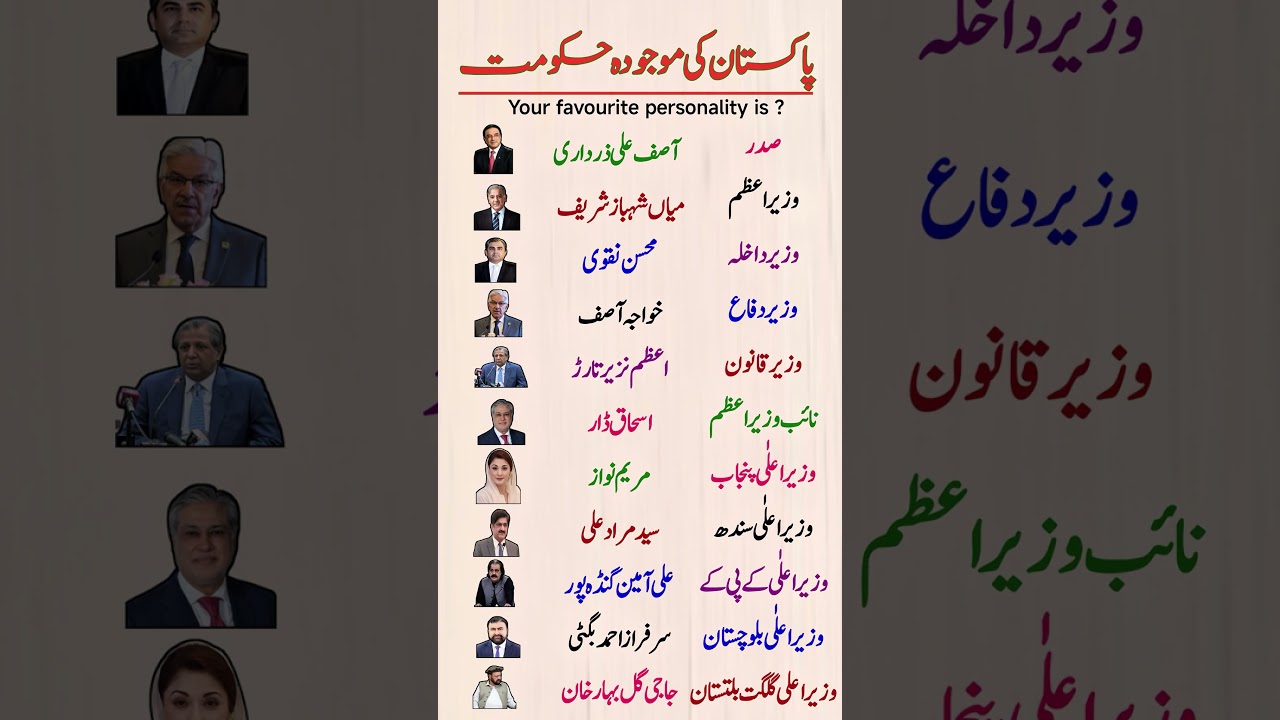 پاکستان کی موجودہ حکومت
Your favourite personality is ?
صدر آصف علی ذرداری
وزیراعظم میاں شہباز شریف
وزیرداخلہ محسن نقوی
وزیردفاع خواجہ آصف
وزیرقانون اعظم نزیر تارڑ
نائب وزیراعظم اسحاق ڈار
وزیراعلٰی پنجاب مریم نواز
وزیراعلٰی سندھ سید مراد علی
وزیراعلٰی کے پی کے علی آمین گنڈہ پور
وزیراعلٰی بلوچستان سرفراز احمد بگٹی
وزیراعلی گلگت بلتستان حاجی گل بہار خان
وزیرداخلہ
وزیردفاع
وزیرقانون
نائب وزیراعظم